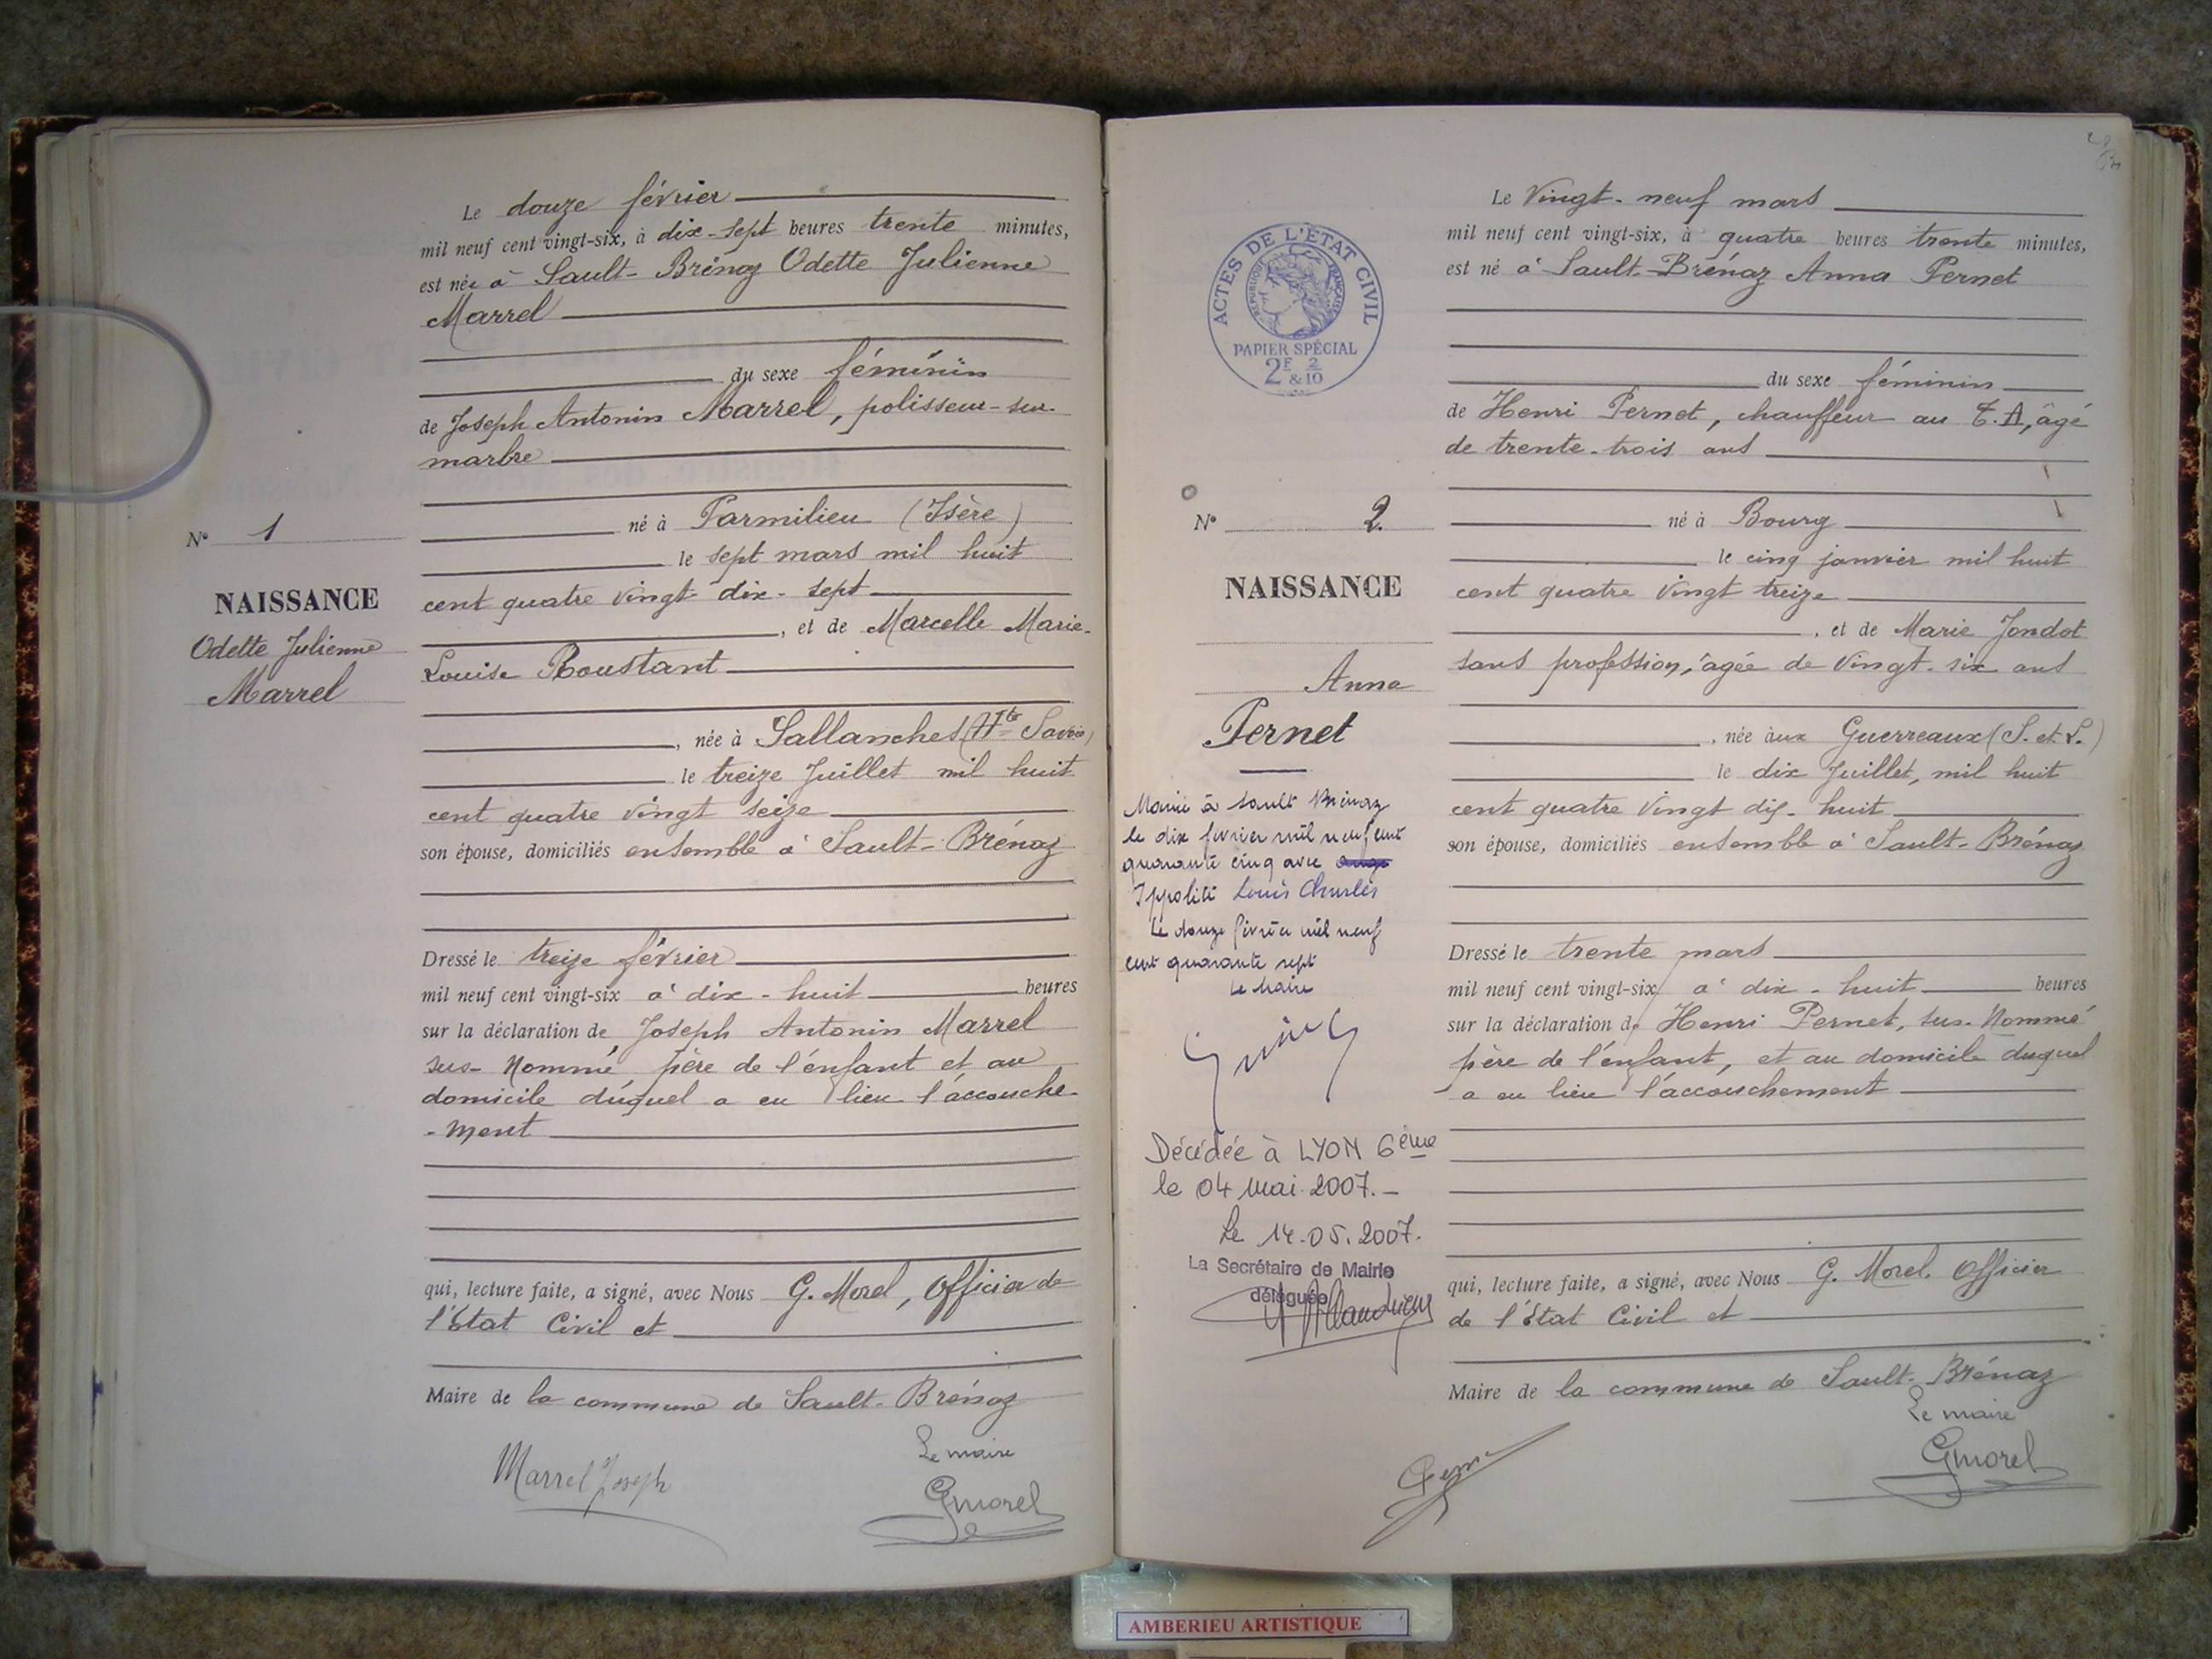 Le douze février
mil neuf cent vingt-six, à dix-sept heures trente minutes,
est née à Sault-Brénaz Odette Julienne
Marrel
du sexe féminin
de Joseph Antonin Marrel, polisseur-sur-
marbre
né à Parmilieu (Isère)
le sept mars mil huit
cent quatre vingt dix-sept
, et de Marcelle Marie-
Louise Roustant
, née à Sallanches (Hte Savoie)
le treize Juillet mil huit
cent quatre vingt seize
son épouse, domiciliés ensemble à Sault-Brénaz
Dressé le treize février
mil neuf cent vingt-six à dix-huit heures
sur la déclaration de Joseph Antonin Marrel
sus-Nommé père de l'enfant et au
domicile duquel a eu lieu l'accouche-
-ment
qui, lecture faite, a signé, avec Nous G. Morel, Officier de
l'État Civil et
Maire de la commune de Sault-Brénaz
Le maire
Marrel Joseph
GMorel
N° 1
NAISSANCE
Odette Julienne
Marrel
ACTES DE L'ETAT CIVIL
REPUBLIQUE FRANÇAISE
PAPIER SPÉCIAL
2F & 2/10
N° 2.
NAISSANCE
Anna
Pernet
Mariée à Sault Brénaz
le dix février mil neuf cent
quarante cinq avec
Ippolite Louis Charles
Le douze février mil neuf
cent quarante sept
Le Maire
Décédée à LYON 6ème
le 04 Mai 2007.-
Le 14.05.2007.
La Secrétaire de Mairie
déléguée
Le Vingt-neuf mars
mil neuf cent vingt-six, à quatre heures trente minutes,
est né à Sault-Brénaz Anna Pernet
du sexe féminin
de Henri Pernet, chauffeur au T.A, âgé
de trente-trois ans
né à Bourg
le cinq janvier mil huit
cent quatre Vingt treize
, et de Marie Jondot
sans profession, âgée de Vingt-six ans
, née aux Guerreaux (S. et L.)
le dix Juillet, mil huit
cent quatre Vingt dix-huit
son épouse, domiciliés ensemble à Sault-Brénaz
Dressé le trente mars
mil neuf cent vingt-six à dix-huit heures
sur la déclaration de Henri Pernet, sus-Nommé
père de l'enfant, et au domicile duquel
a eu lieu l'accouchement
qui, lecture faite, a signé, avec Nous G. Morel. Officier
de l'État Civil et
Maire de la commune de Sault-Brénaz
Le maire
GMorel
AMBERIEU ARTISTIQUE